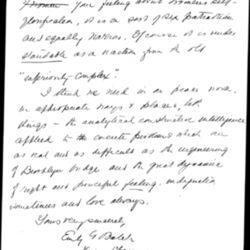 Your feeling about womens self-
glorification, it is a sort of sex patriotism
and equally narrow. Of course it is under-
standable as a reaction from the old
"inferiority complex".
I think we need in our peace work,
in appropriate ways & places, both
things - the analytical constructive intelligence
applied to the concrete problems which are
as real and as difficult as the engineering
of Brooklyn bridge and the great dynamic
of right and forceful feeling. indignation
sometimes and love always.
Yours very sincerely,
Emily G Balch